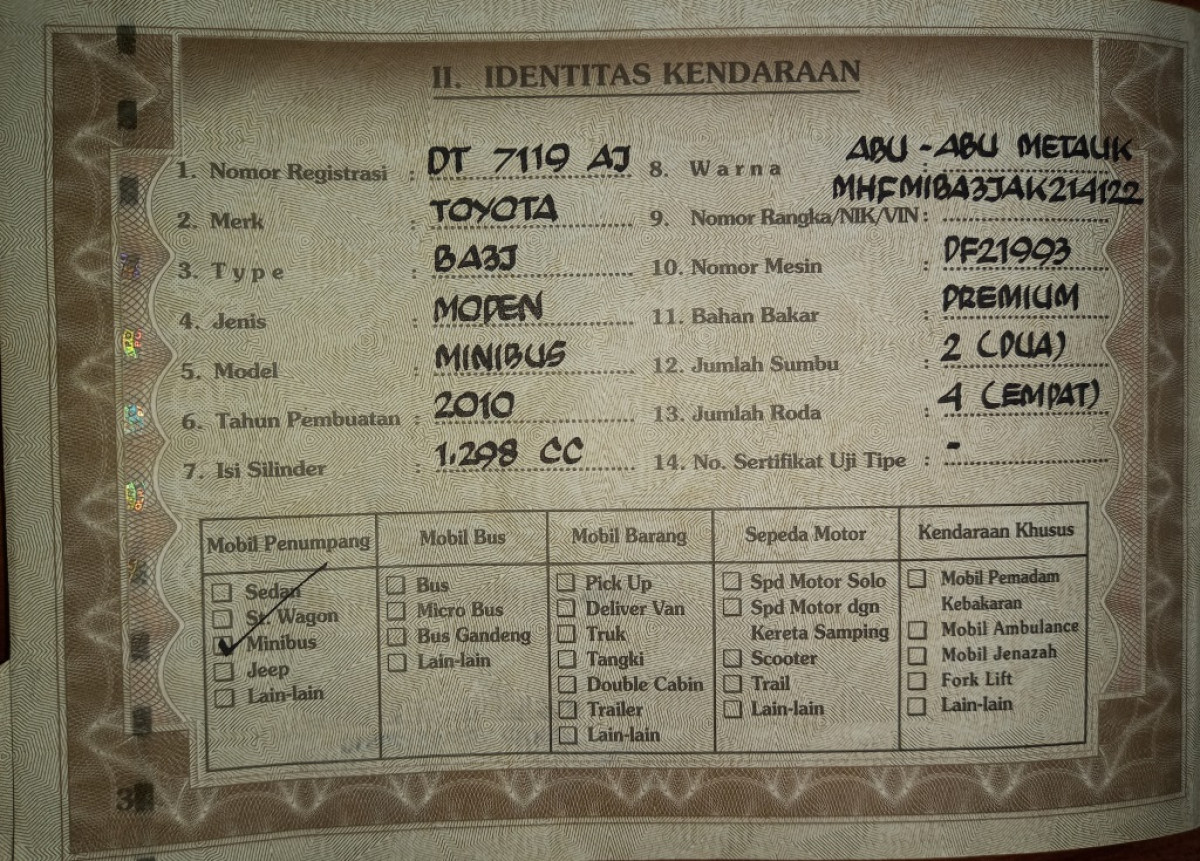 II. IDENTITAS KENDARAAN
1. Nomor Registrasi : DT 7119 AJ
2. Merk : TOYOTA
3. Type : BA3J
4. Jenis : MOPEN
5. Model : MINIBUS
6. Tahun Pembuatan : 2010
7. Isi Silinder : 1.298 CC
8. Warna : ABU-ABU METALIK
9. Nomor Rangka/NIK/VIN : MHFM1BA3JAK214122
10. Nomor Mesin : DF21993
11. Bahan Bakar : PREMIUM
12. Jumlah Sumbu : 2 (DUA)
13. Jumlah Roda : 4 (EMPAT)
14. No. Sertifikat Uji Tipe : -
Mobil Penumpang
Sedan
St. Wagon
Minibus
Jeep
Lain-lain
Mobil Bus
Bus
Micro Bus
Bus Gandeng
Lain-lain
Mobil Barang
Pick Up
Deliver Van
Truk
Tangki
Double Cabin
Trailer
Lain-lain
Sepeda Motor
Spd Motor Solo
Spd Motor dgn
Kereta Samping
Scooter
Trail
Lain-lain
Kendaraan Khusus
Mobil Pemadam
Kebakaran
Mobil Ambulance
Mobil Jenazah
Fork Lift
Lain-lain
3